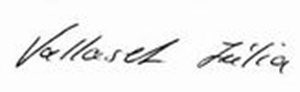 Vallasek Júlia